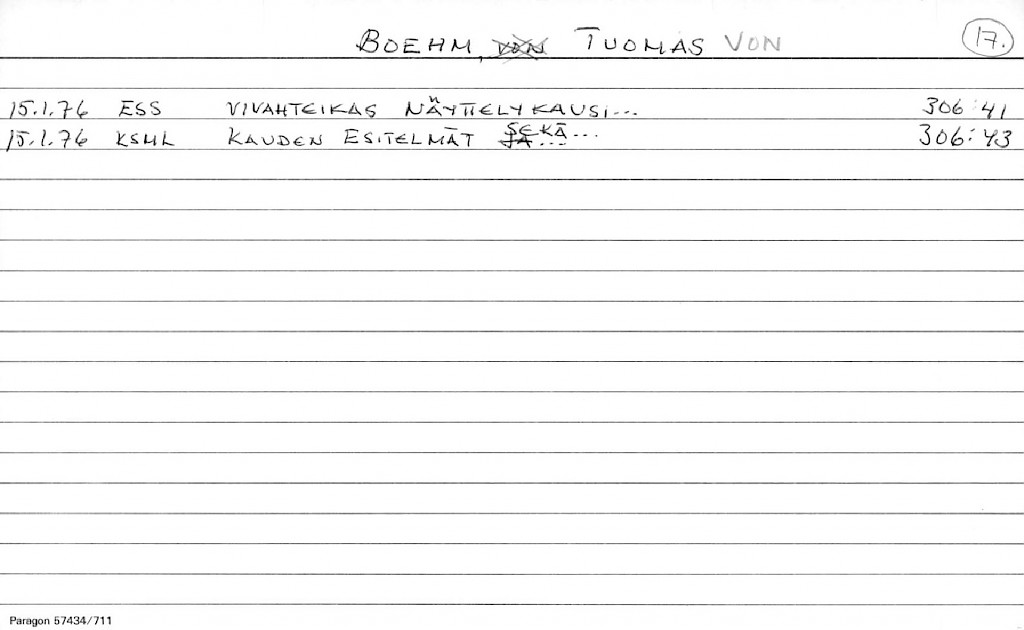 BOEHM, VON TUOMAS VON 17.
15.1.76 ESS VIVAHTEIKAS NÄYTTELYKAUSI... 306:41
15.1.76 KSML KAUDEN ESITELMÄT JA... SEKÄ... 306:43
Paragon 57434/711